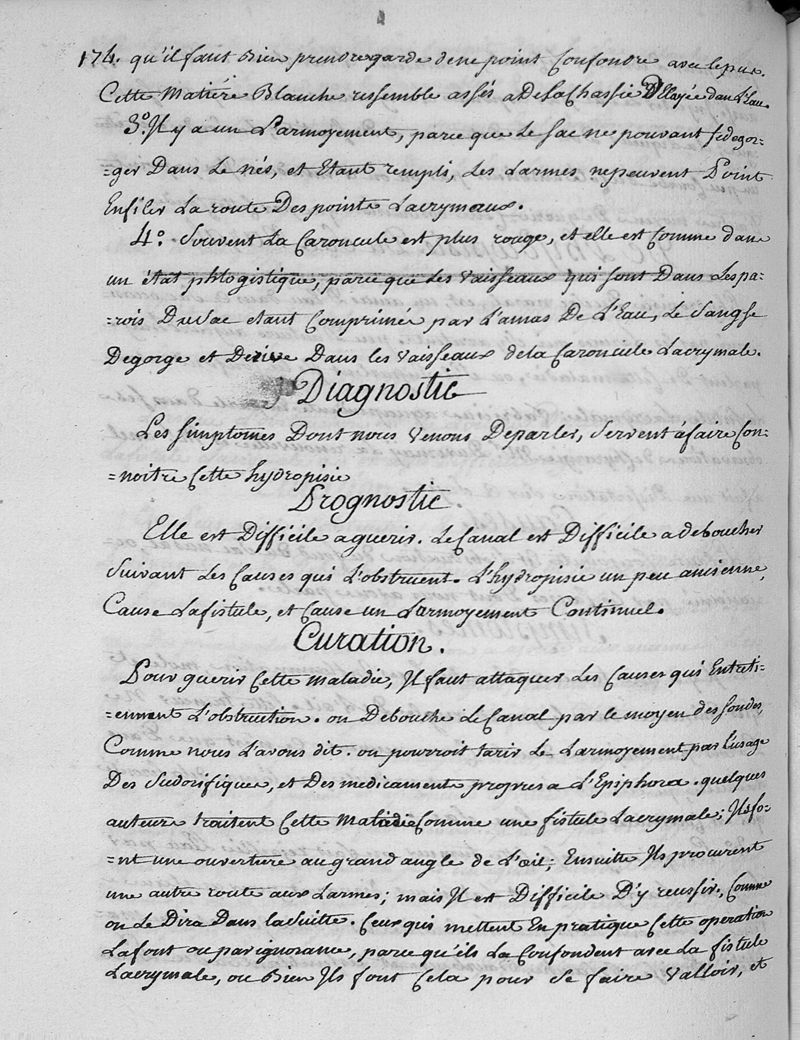 174. qu'il faut Bien prendre garde de ne point Confondre avec le pus.
Cette Matiére Blanche ressemble assés a De la Chassie Delayée dans L'Eau.
3.° Il y a un Larmoyement, parce que Le sac ne pouvant se degor=
=ger Dans Le nés, et Etant rempli, Les Larmes ne peuvent Point
Enfiler La route Des points Lacrymaux.
4.° Souvent La Caroncule est plus rouge, et elle est Comme dans
un état phlogistique, parce que Les Vaisseaux qui sont Dans Les pa=
=rois Du Sac etant Comprimés par L'amas De L'Eau, Le Sang se
Degorge et Derive Dans les Vaisseaux de la Caroncule Lacrymale.
Diagnostic
Les simptomes Dont nous Venons De parler, servent à faire Con=
=noitre Cette hydropisie
Prognostic
Elle est Difficile a guerir. Le Canal est Difficile a deboucher
suivant Les Causes qui L'obstruent. L'hydropisie un peu ancienne,
Cause La fistule, et Cause un Larmoyement Continuel.
Curation.
Pour guerir Cette maladie, Il faut attaquer Les Causes qui Entreti=
=ennent L'obstruction. on Debouche Le Canal par le moyen des sondes,
Comme nous L'avons dit. on pourroit tarir Le Larmoyement par l'usage
Des Sudorifiques, et Des medicaments propres a L'Epiphora. quelques
auteurs traitent Cette Maladie Comme une fistule Lacrymale; Ils fo=
=nt une ouverture au grand angle de L'œil; Ensuitte Ils procurent
une autre route aux Larmes; mais Il est Difficile D'y reussir, Comme
on Le Dira Dans la Suitte. Ceux qui mettent En pratique Cette operation
La font ou par ignorance, parce qu'ils La Confondent avec La fistule
Lacrymale, ou Bien Ils font Cela pour se faire Valloir, et